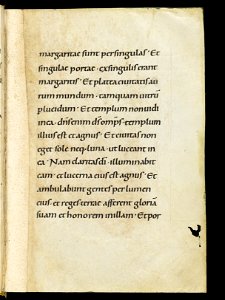 margaritae sunt per singulas · Et
singulae portae · ex singulis erant
margaritis · Et platea ciuitatis au
rum mundum · tamquam uitrũ
plucidum · Et templum non uidi
in ea · dñs enim ds omps · templum
illius est et agnus · Et ciuitas non
eget sole neq; luna · ut luceant in
ea · Nam claritas di · illuminabit
eam · et lucerna eius est agnus · Et
ambulabunt gentes per lumen
eius et reges terrae afferent gloriã
suam et honorem in illam · Et por